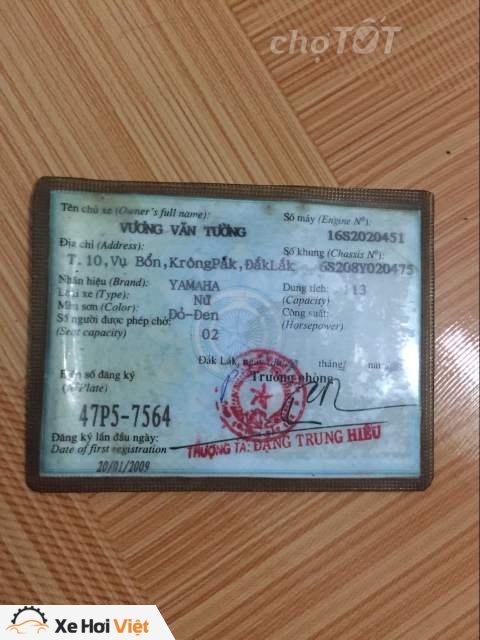 chợTỐT
Tên chủ xe (Owner's full name):
VƯƠNG VĂN TƯỜNG
Số máy (Engine Nº):
16S2020451
Địa chỉ (Address):
T.10,Vụ Bổn,KrôngPăk,ĐắkLắk
Số khung (Chassis Nº):
6S208Y020475
Nhãn hiệu (Brand): YAMAHA
Dung tích: 113
(Capacity)
Loại xe (Type): Nữ
Màu sơn (Color): Đỏ-Đen
Công suất:
(Horsepower)
Số người được phép chở: 02
(Seat capacity)
Đắk Lắk, tháng năm
Trưởng phòng
Biển số đăng ký
(N.Plate)
47P5-7564
Đăng ký lần đầu ngày:
Date of first registration
20/01/2009
THƯỢNG TÁ: ĐẶNG TRUNG HIẾU
Xe Hơi Việt